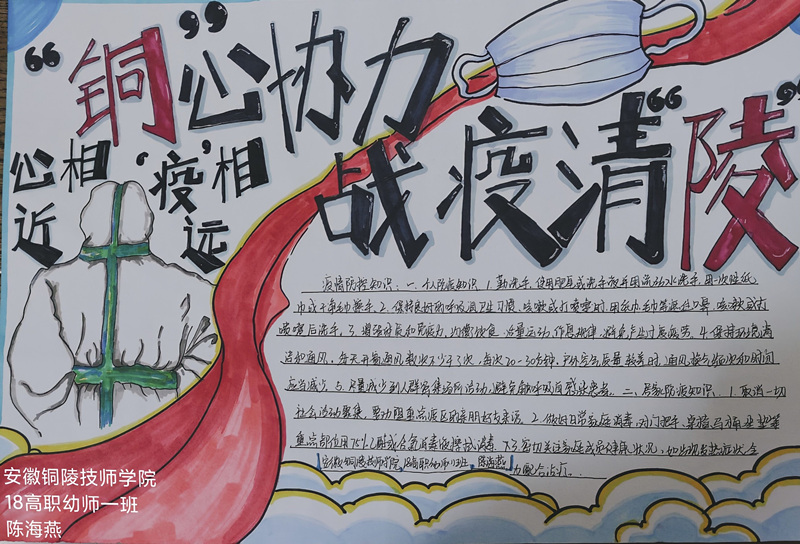 “铜”心协力
战疫清“陵”
心相近
‘疫’相远
疫情防控知识：一、个人防疫知识 1.勤洗手，使用肥皂或洗手液并用流动水洗手，用一次性纸
巾或干净毛巾擦手。2.保持良好的呼吸道卫生习惯，咳嗽或打喷嚏时，用纸巾、毛巾等遮住口鼻，咳嗽或打
喷嚏后洗手。3.增强体质和免疫力，均衡饮食、适量运动、作息规律，避免产生过度疲劳。4.保持环境清
洁和通风，每天开窗通风数次不少于3次，每次20-30分钟，户外空气质量较差时，通风换气频次和时间
应当减少。5.尽量减少到人群密集场所活动，避免接触呼吸道感染患者。二、居家防疫知识：1.取消一切
社会活动聚集，
2.做好日常家庭消毒，对门把手、
重点部位用75%乙醇或含氯消毒液擦拭消毒。3.密切关注家庭成员健康状况，如出现发热症状会
安徽铜陵技师学院 18高职幼师1班 陈海燕
安徽铜陵技师学院
18高职幼师一班
陈海燕